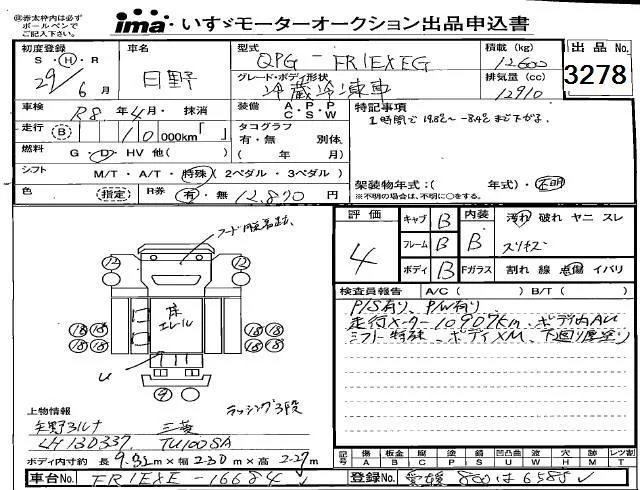 ※赤太枠内は必ず
ボールペンで
ご記入下さい。
ima・いすゞモーターオークション出品申込書
初度登録 車名 型式 積載(kg) 出品No.
S・H・R 29年 6月 日野 QPG-FR1EXEG 12600 3278
グレード・ボディ形状 排気量(cc)
冷蔵冷凍車 12910
車検 R8年4月・抹消 装備 A・P・P C・S・W 特記事項
走行 (B) 10 000km「 」 タコグラフ 1時間で
有・無 別体
燃料 G・D・HV 他( ) ( 年 月)
シフト M/T・A/T・特殊(2ペダル・3ペダル) 架装物年式:( 年式)・不明
※不明の場合は、不明に○をする。
色 (指定) R券 有・無 12,870円
評価 キャブ B 内装 汚れ 破れ ヤニ スレ
4 フレーム B B スリキズ
ボディ B Fガラス 割れ 線 点傷 イバリ
検査員報告 A/C( ) B/T( )
P/S有り、P/W有り
走行メーター10907km、ボディ内AU
シフト特殊、ボディXM、下廻り厚塗り
12 12
床
エレール
18 18 18 18
18 18 18 18
U
9
ラッシング3段
上物情報
矢野ヨルナ 三菱
LH13D337 TU100SA
ボディ内寸約 長9.32m×幅2.30m×高2.27m
記号 傷 A 板金 B 腐 C 塗 P 錆 S 凹凸曲 U 波 W 穴 H 補 M × T レンズ割
車台No. FR1EXE-16684 登録No. 愛媛 800は6585